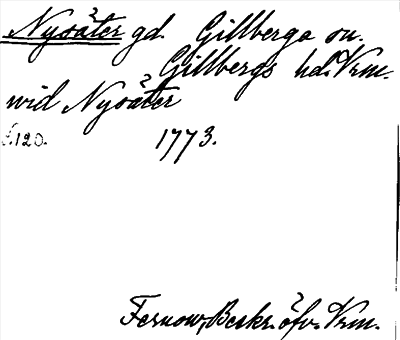 Nysäter gd. Gillberga sn.
Gillbergs hd. Vrm.
wid Nysäter
s. 120. 1773.
Fernow, Beskr. öfv. Vrm.